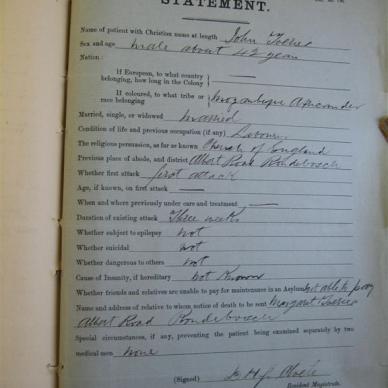 STATEMENT.
Name of patient with Christian name at length John
Sex and age male about 42 years
Nation:
If European, to what country belonging, how long in the Colony
If coloured, to what tribe or race belonging Mozambique Africander
Married, single, or widowed married
Condition of life and previous occupation (if any) Labourer
The religious persuasion, as far as known Church of England
Previous place of abode, and district Albert Road Rondebosch
Whether first attack first attack
Age, if known, on first attack
When and where previously under care and treatment
Duration of existing attack Three weeks
Whether subject to epilepsy not
Whether suicidal not
Whether dangerous to others not
Cause of Insanity, if hereditary not known
Whether friends and relatives are unable to pay for maintenance in an Asylum not able to pay
Name and address of relative to whom notice of death to be sent Margaret
Albert Road Rondebosch
Special circumstances, if any, preventing the patient being examined separately by two
medical men none
(Signed)
Resident Magistrate.